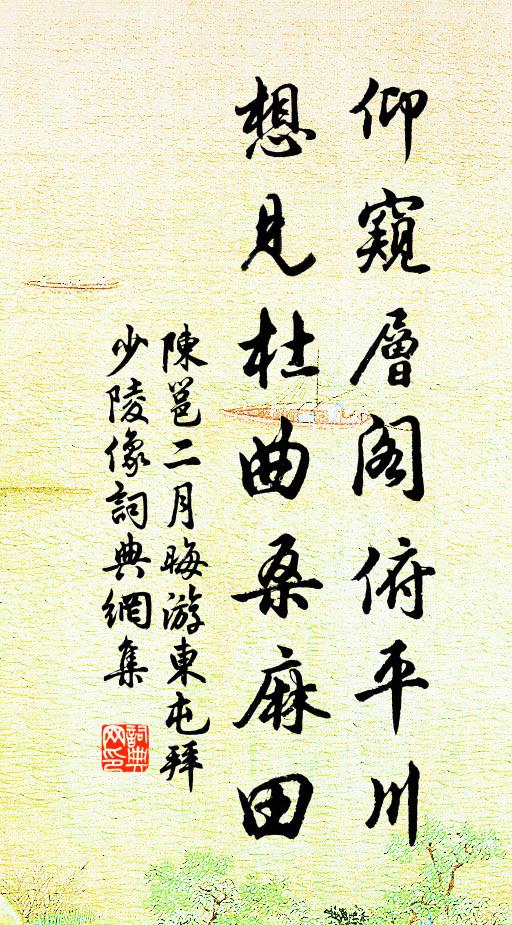 仰窺層阁俯平川
想見杜曲桑麻田
陳邕二月晦游東屯拜
少陵像詞典網集
詞典网印